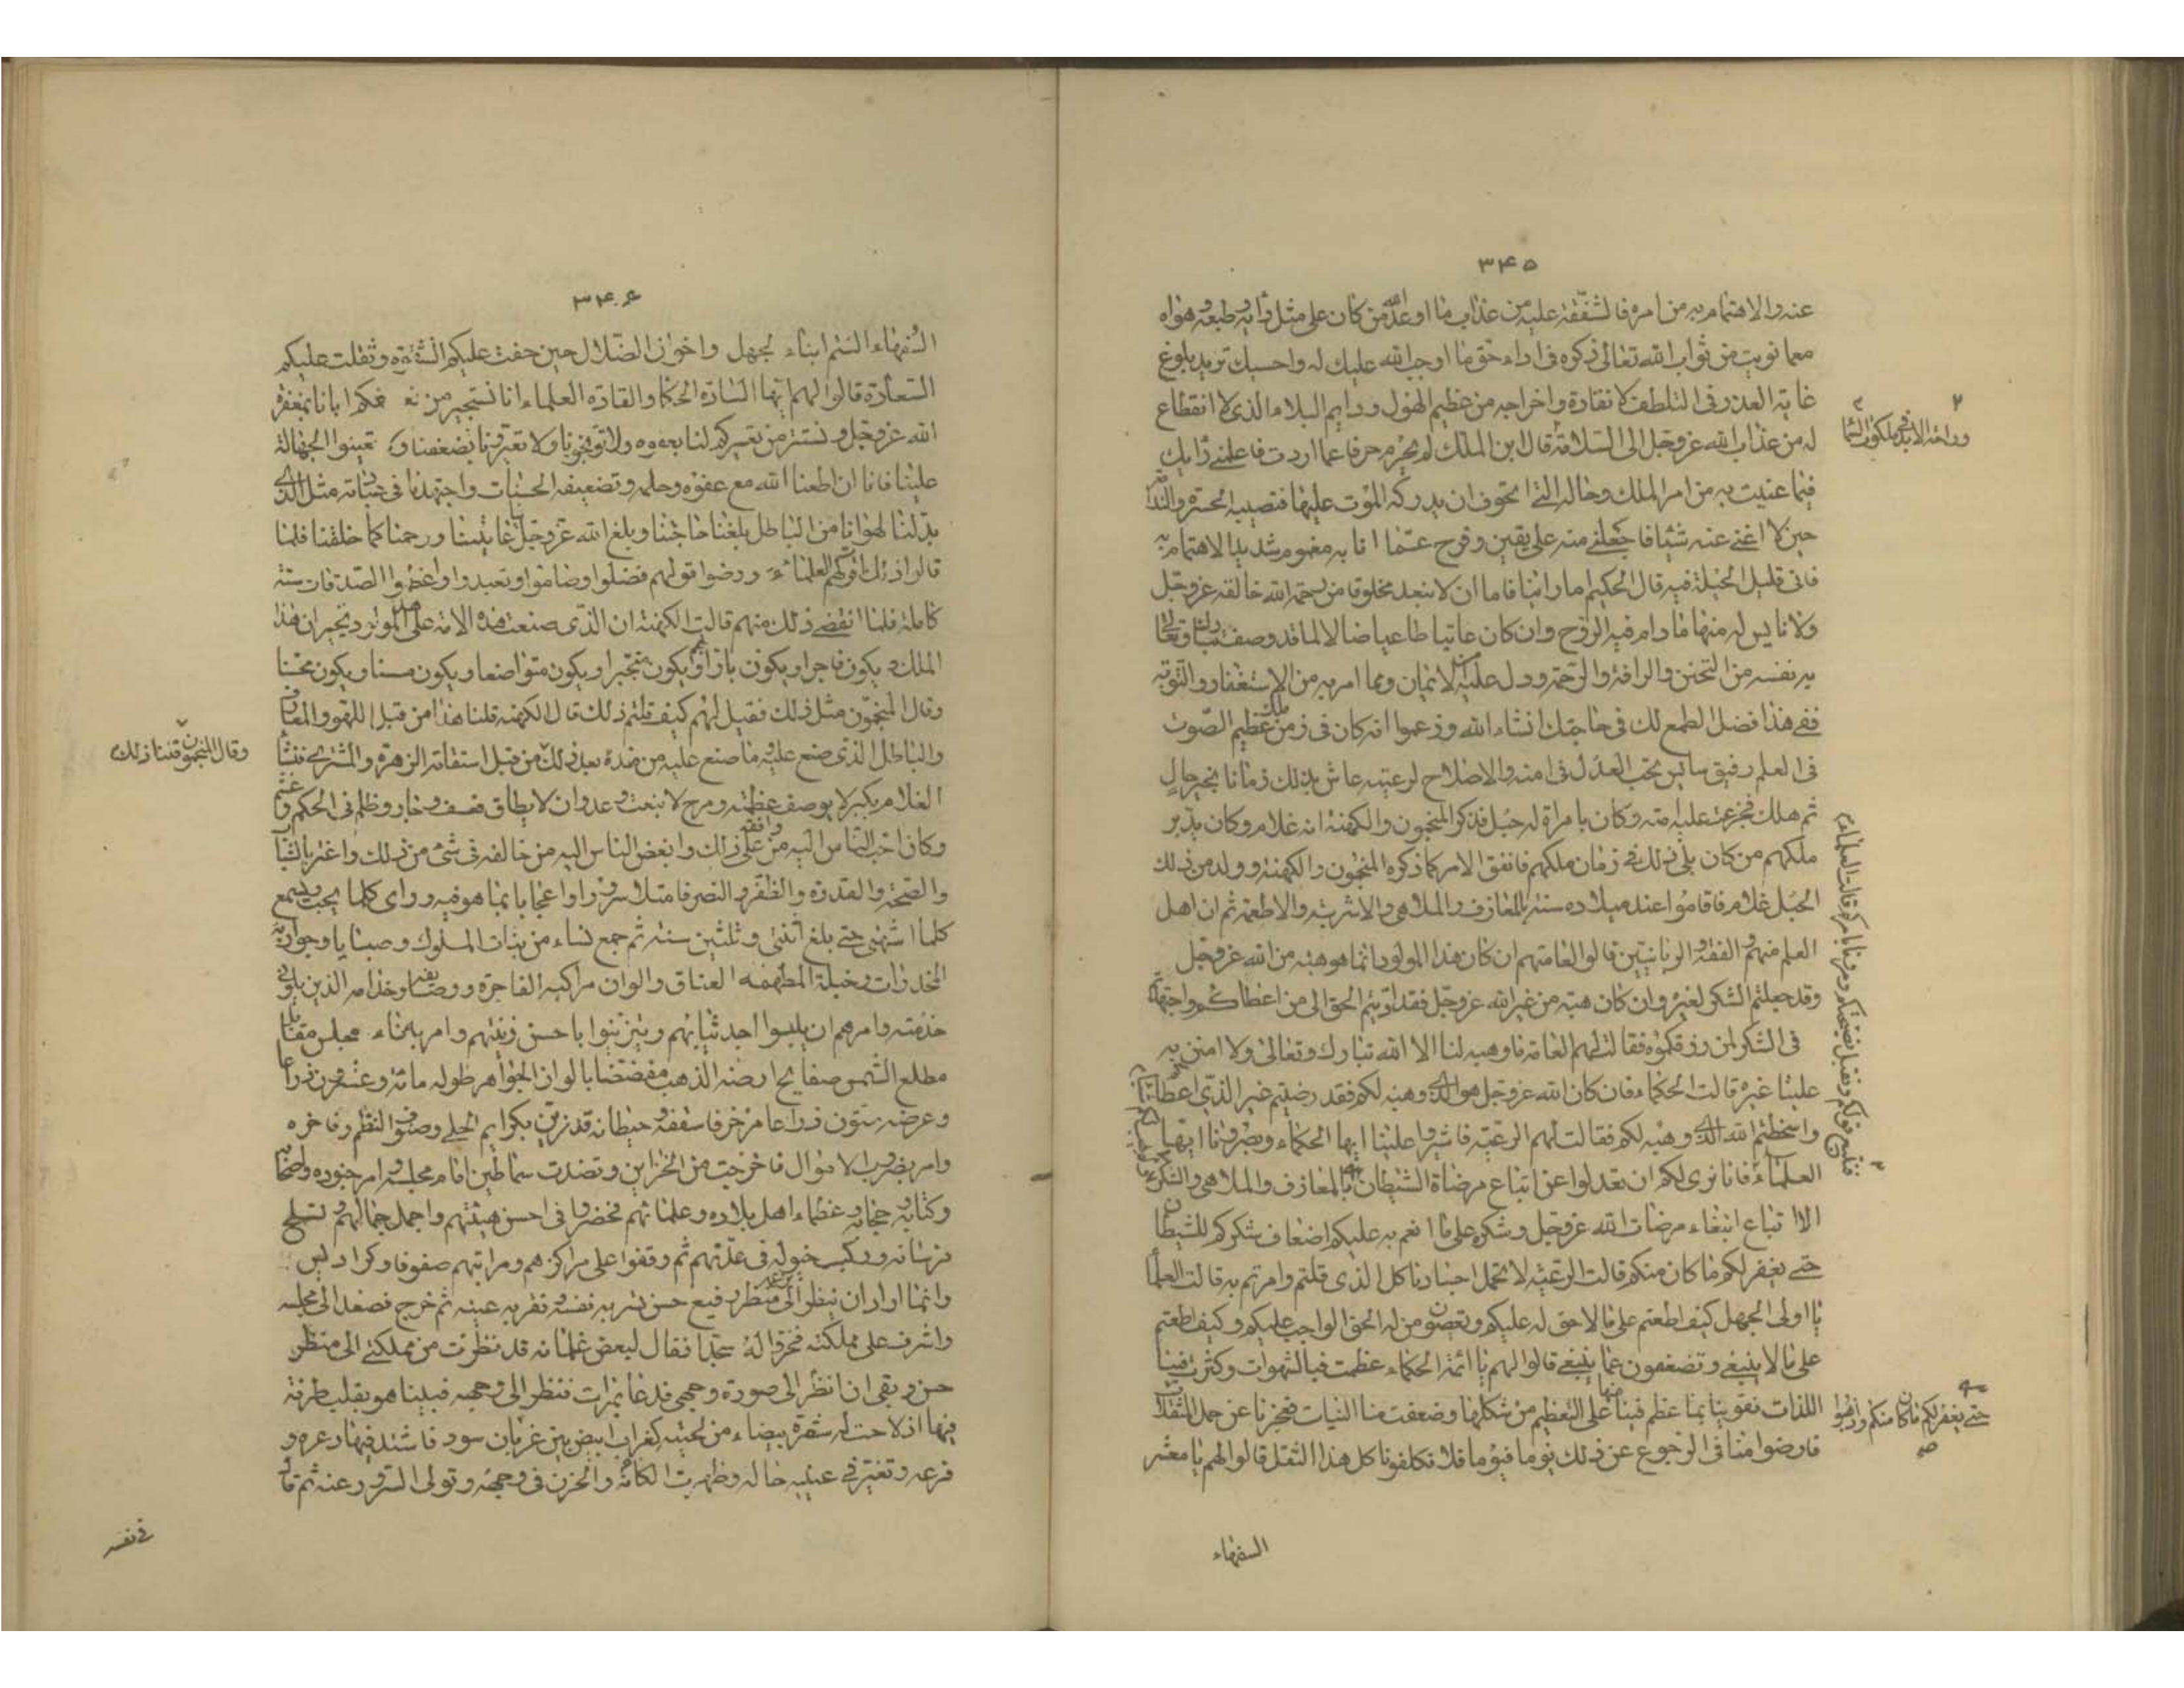 ٣۴۵
عنه والاهتمام به من امره فالشفقة عليه من عذاب ما اوعد الله من كان على مثل رايه وطبعه وهواه
مع ما نويت من ثواب الله تعالى ذكره فى اداء حق ما اوجب الله عليك له واحسبك تريد بلوغ
غاية العذر فى التلطف لانقاذه واخراجه من عظيم الهول ودايم البلاء الذى لا انقطاع
له من عذاب الله عز وجل الى السلامة قال ابن الملك لم تجرم حرفا عما اردت فاعلمنى رايك
فيما عنيت به من امر الملك وحاله التى اتخوف ان يدركه الموت عليها فتصيبه الحسرة والندامة
حين لا اغنى عنه شيئا فاجعلنى منه على يقين وفرج عما انا به مغموم شديد الاهتمام به
فانى قليل الحيلة فيه قال الحكيم اما راينا فاما ان لا نبعد مخلوقا من رحمة الله خالقه عز وجل
ولا نايس له منها ما دام فيه الروح وان كان عاتيا طاغيا ضالا لما قد وصف ربنا تبارك وتعالى
به نفسه من التحنن والرافة والرحمة ودل عليه من الايمان وما امر به من الاستغفار والتوبة
ففى هذا فضل الطمع لك فى حاجتك انشاء الله وزعموا انه كان فى زمن ملك عظيم الصوت
فى العلم رفيق سايس يحب العدل فى امته والاصلاح لرعيته عاش بذلك زمانا بخير حال
ثم هلك فجزعت عليه امته وكان بامراة له حبل فذكر المنجمون والكهنة انه غلام وكان يدبر
ملكهم من كان يلى ذلك فى زمان ملكهم فاتفق الامر كما ذكره المنجمون والكهنة وولد من ذلك
الحبل غلام فاقاموا عند ميلاده سنة بالمعازف والملاهى والاشربة والاطعمة ثم ان اهل
العلم منهم والفقه والربانيين قالوا لعامتهم ان كان هذا المولود انما هو هبة من الله عز وجل
وقد جعلتم الشكر لغيره وان كان هبة من غير الله عز وجل فقد اديتم الحق الى من اعطاكموه واجتهدتم
فى الشكر لمن رزقكموه فقالت لهم العامة ما وهبه لنا الا الله تبارك وتعالى ولا امتن به
علينا غيره قالت الحكماء فان كان الله عز وجل هو الذى وهبه لكم فقد رضيتم غير الذى اعطاكم
واسخطتم الله الذى وهبه لكم فقالت لهم الرعية فاشيروا علينا ايها الحكماء وبصرونا ايها
العلماء فانا نرى لكم ان تعدلوا عن اتباع مرضاة الشيطان بالمعازف والملاهى والسكر
الا اتباع ابتغاء مرضات الله عز وجل وشكره على ما انعم به عليكم اضعاف شكركم للشيطان
حتى يغفر لكم ما كان منكم قالت الرعية لا تحمل اجسادنا كل الذى قلتم وامرتم به قالت العلماء
يا اولى الجهل كيف اطعتم على ما لا حق له عليكم وتعصون من له الحق الواجب عليكم وكيف اطعتم
على ما لا ينبغى وتضعفون عما ينبغى قالوا لهم يا ائمة الحكماء عظمت فينا الشهوات وكثرت فينا
اللذات فقوينا بما عظم فينا منها على العظيم من شكلها وضعفت منا النيات فعجزنا عن حمل المثقلات
فارضوا منا فى الرجوع عن ذلك يوما فيوما فلا تكلفونا كل هذا الثقل قالوا لهم يا معشر
السفهاء
وراحة الابد فى ملكوت السماء
فنتبع قولكم ونقبل نصيحتكم ومرونا بامركم قالت العلماء
حتى يغفر لكم ما كان منكم
٣۴۶
السفهاء الستم ابناء الجهل واخوان الضلال حين خفت عليكم الشقوة وثقلت عليكم
السعادة قالوا لهم ايها السادة الحكماء والقادة العلماء انا نستجير من تعنيفكم ايانا بمغفرة
الله عز وجل ونستتر من تعييركم لنا بعفوه ولا توبخونا ولا تعيرونا بضعفنا ولا تعيبوا الجهالة
علينا فانا ان اطعنا الله مع عفوه وحلمه وتضعيفه الحسنات واجتهدنا فى عبادته مثل الذى
بذلنا لهوانا من الباطل بلغنا حاجتنا وبلغ الله عز وجل بنا غايتنا ورحمنا كما خلقنا فلما
قالوا ذلك اقر لهم العلماء ورضوا قولهم فصلوا وصاموا وتعبدوا واعظموا الصدقات سنة
كاملة فلما انقضى ذلك منهم قالت الكهنة ان الذى صنعت هذه الامة على هذا المولود تخبر ان هذا
الملك يكون فاجرا ويكون بارا ويكون متجبرا ويكون متواضعا ويكون مسيئا ويكون محسنا
وقال المنجمون مثل ذلك فقيل لهم كيف قلتم ذلك قال الكهنة قلنا هذا من قبل اللهو والمعازف
والباطل الذى صنع عليه وما صنع عليه من ضده بعد ذلك من قبل استقامة الزهرة والمشترى فنشأ
الغلام بكبر لا يوصف عظمته ومرح لا ينعت وعدوان لا يطاق فعسف وجار وظلم فى الحكم وغشم
وكان احب الناس اليه من وافقه على ذلك وابغض الناس اليه من خالفه فى شئ من ذلك واغتر بالشباب
والصحة والقدرة والظفر والنصر فامتلأ سرورا واعجابا بما هو فيه وراى كلما يحب ويسمع
كلما اشتهى حتى بلغ اثنتى وثلثين سنة ثم جمع نساء من بنات الملوك وصبيانا وجواريه
المخدرات وخيلة المطهمة العتاق والوان مراكبه الفاخرة ووصائفه وخدامه الذين يلون
خدمته وامرهم ان يلبسوا اجد ثيابهم ويتزينوا باحسن زينتهم وامر ببناء مجلس مقابل
مطلع الشمس صفايح ارضه الذهب مفضضا بالوان الجواهر طوله مائة وعشرون ذراعا
وعرضه ستون ذراعا مزخرفا سقفه وحيطانه قد زين بكرايم الحلى وصنوف النظم وفاخره
وامر بضروب الاموال فاخرجت من الخزاين ونضدت سماطين امام مجلسه وامر جنوده واصحابه
وكتابه وحجابه وعظماء اهل بلاده وعلمائهم فحضروا فى احسن هيئتهم واجمل جمالهم وتسلح
فرسانه وركبت خيوله فى عدتهم ثم وقفوا على مراكزهم ومراتبهم صفوفا وكراديس
وانما اراد ان ينظر الى منظر رفيع حسن تسر به نفسه وتقر به عينه ثم خرج فصعد الى مجلسه
واشرف على مملكته فخروا له سجدا فقال لبعض غلمانه قد نظرت من مملكتى الى منظر
حسن وبقى ان انظر الى صورة وجهى فدعا بمرات فنظر الى وجهه فبينا هو يقلب طرفه
فيها اذ لاحت له شقرة بيضاء من لحيته كغراب ابيض بين غربان سود فاشتد فيها ذعره و
فزعه وتغير فى عينيه حاله وظهرت الكآبة والحزن فى وجهه وتولى السرور عنه ثم قال
فى نفسه
وقال المنجمون قلنا ذلك